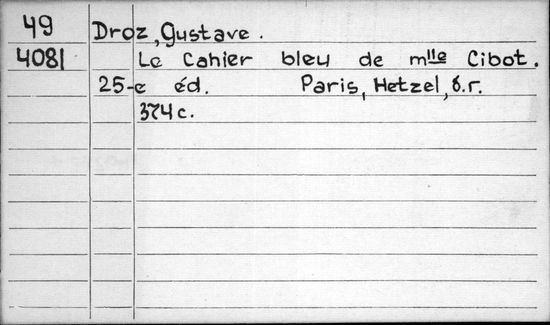 49 Droz, Gustave.
4081 Le Cahier bleu de mlle Cibot.
25-e éd. Paris, Hetzel, б.г.
374 с.